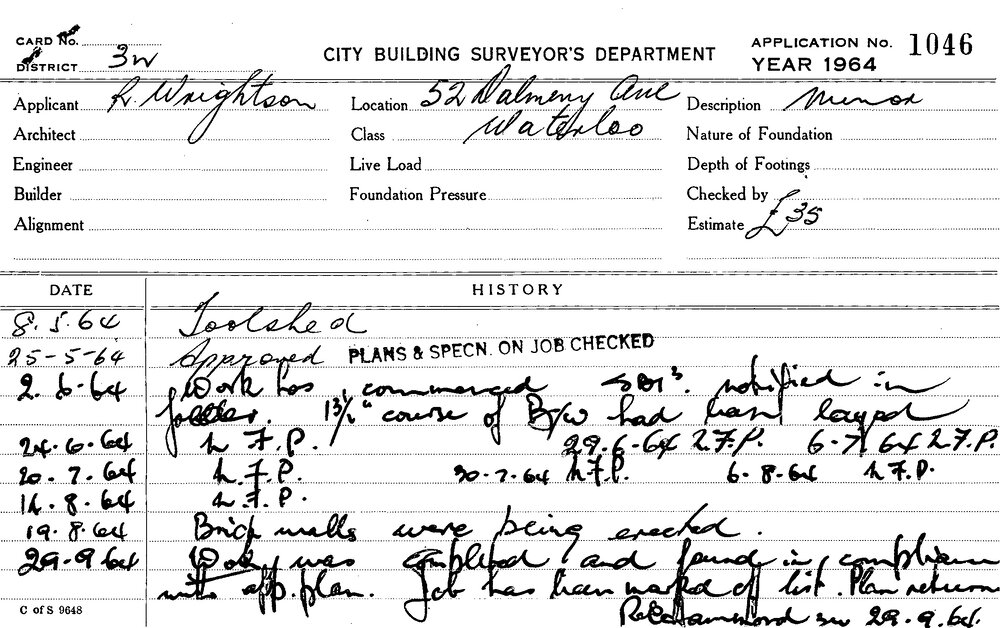 CARD No.
DISTRICT 3W
CITY BUILDING SURVEYOR'S DEPARTMENT
APPLICATION No. 1046
YEAR 1964
Applicant R. Wrightson Location 52 Dalmeny Ave Description Minor
Architect Class Waterloo Nature of Foundation
Engineer Live Load Depth of Footings
Builder Foundation Pressure Checked by
Alignment Estimate £35
DATE HISTORY
8.5.64 Toolshed
25-5-64 Approved PLANS & SPECN. ON JOB CHECKED
2.6.64 Work has commenced notified in
13½" course of B/w had been layed
24.6.64 N.F.P. 29.6-64 N.F.P. 6-7-64 N.F.P.
20.7.64 N.F.P. 30.7.64 N.F.P. 6.8.64 N.F.P.
14.8.64 N.F.P.
19.8.64 Brick walls were being erected.
29-9-64 Work was completed and found in compliance
with app. plan. Job has been marked off list. Plan return
Recommend 29.9.64.
C of S 9648